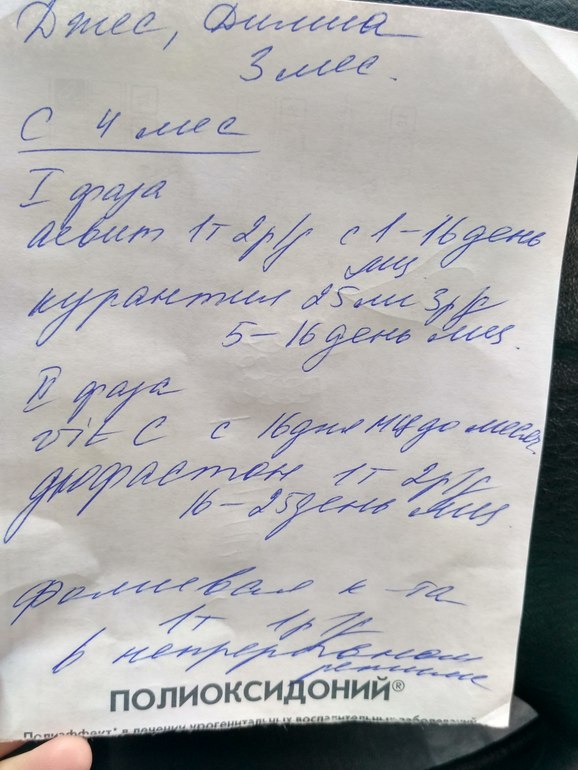 Джес, Димиа
3 мес.
С 4 мес
I фаза
аевит 1т 2р/д с 1-16 день
мц
курантил 25 мг 3р/д
5-16 день мц.
II фаза
vit C с 16 дня мц до месяч.
дюфастон 1т 2р/д
16-25 день мц.
Фолиевая к-та
1т 1р/д
в непрерывном
режиме
ПОЛИОКСИДОНИЙ®
Полиэффект* в лечении урогенитальных воспалительных заболеваний